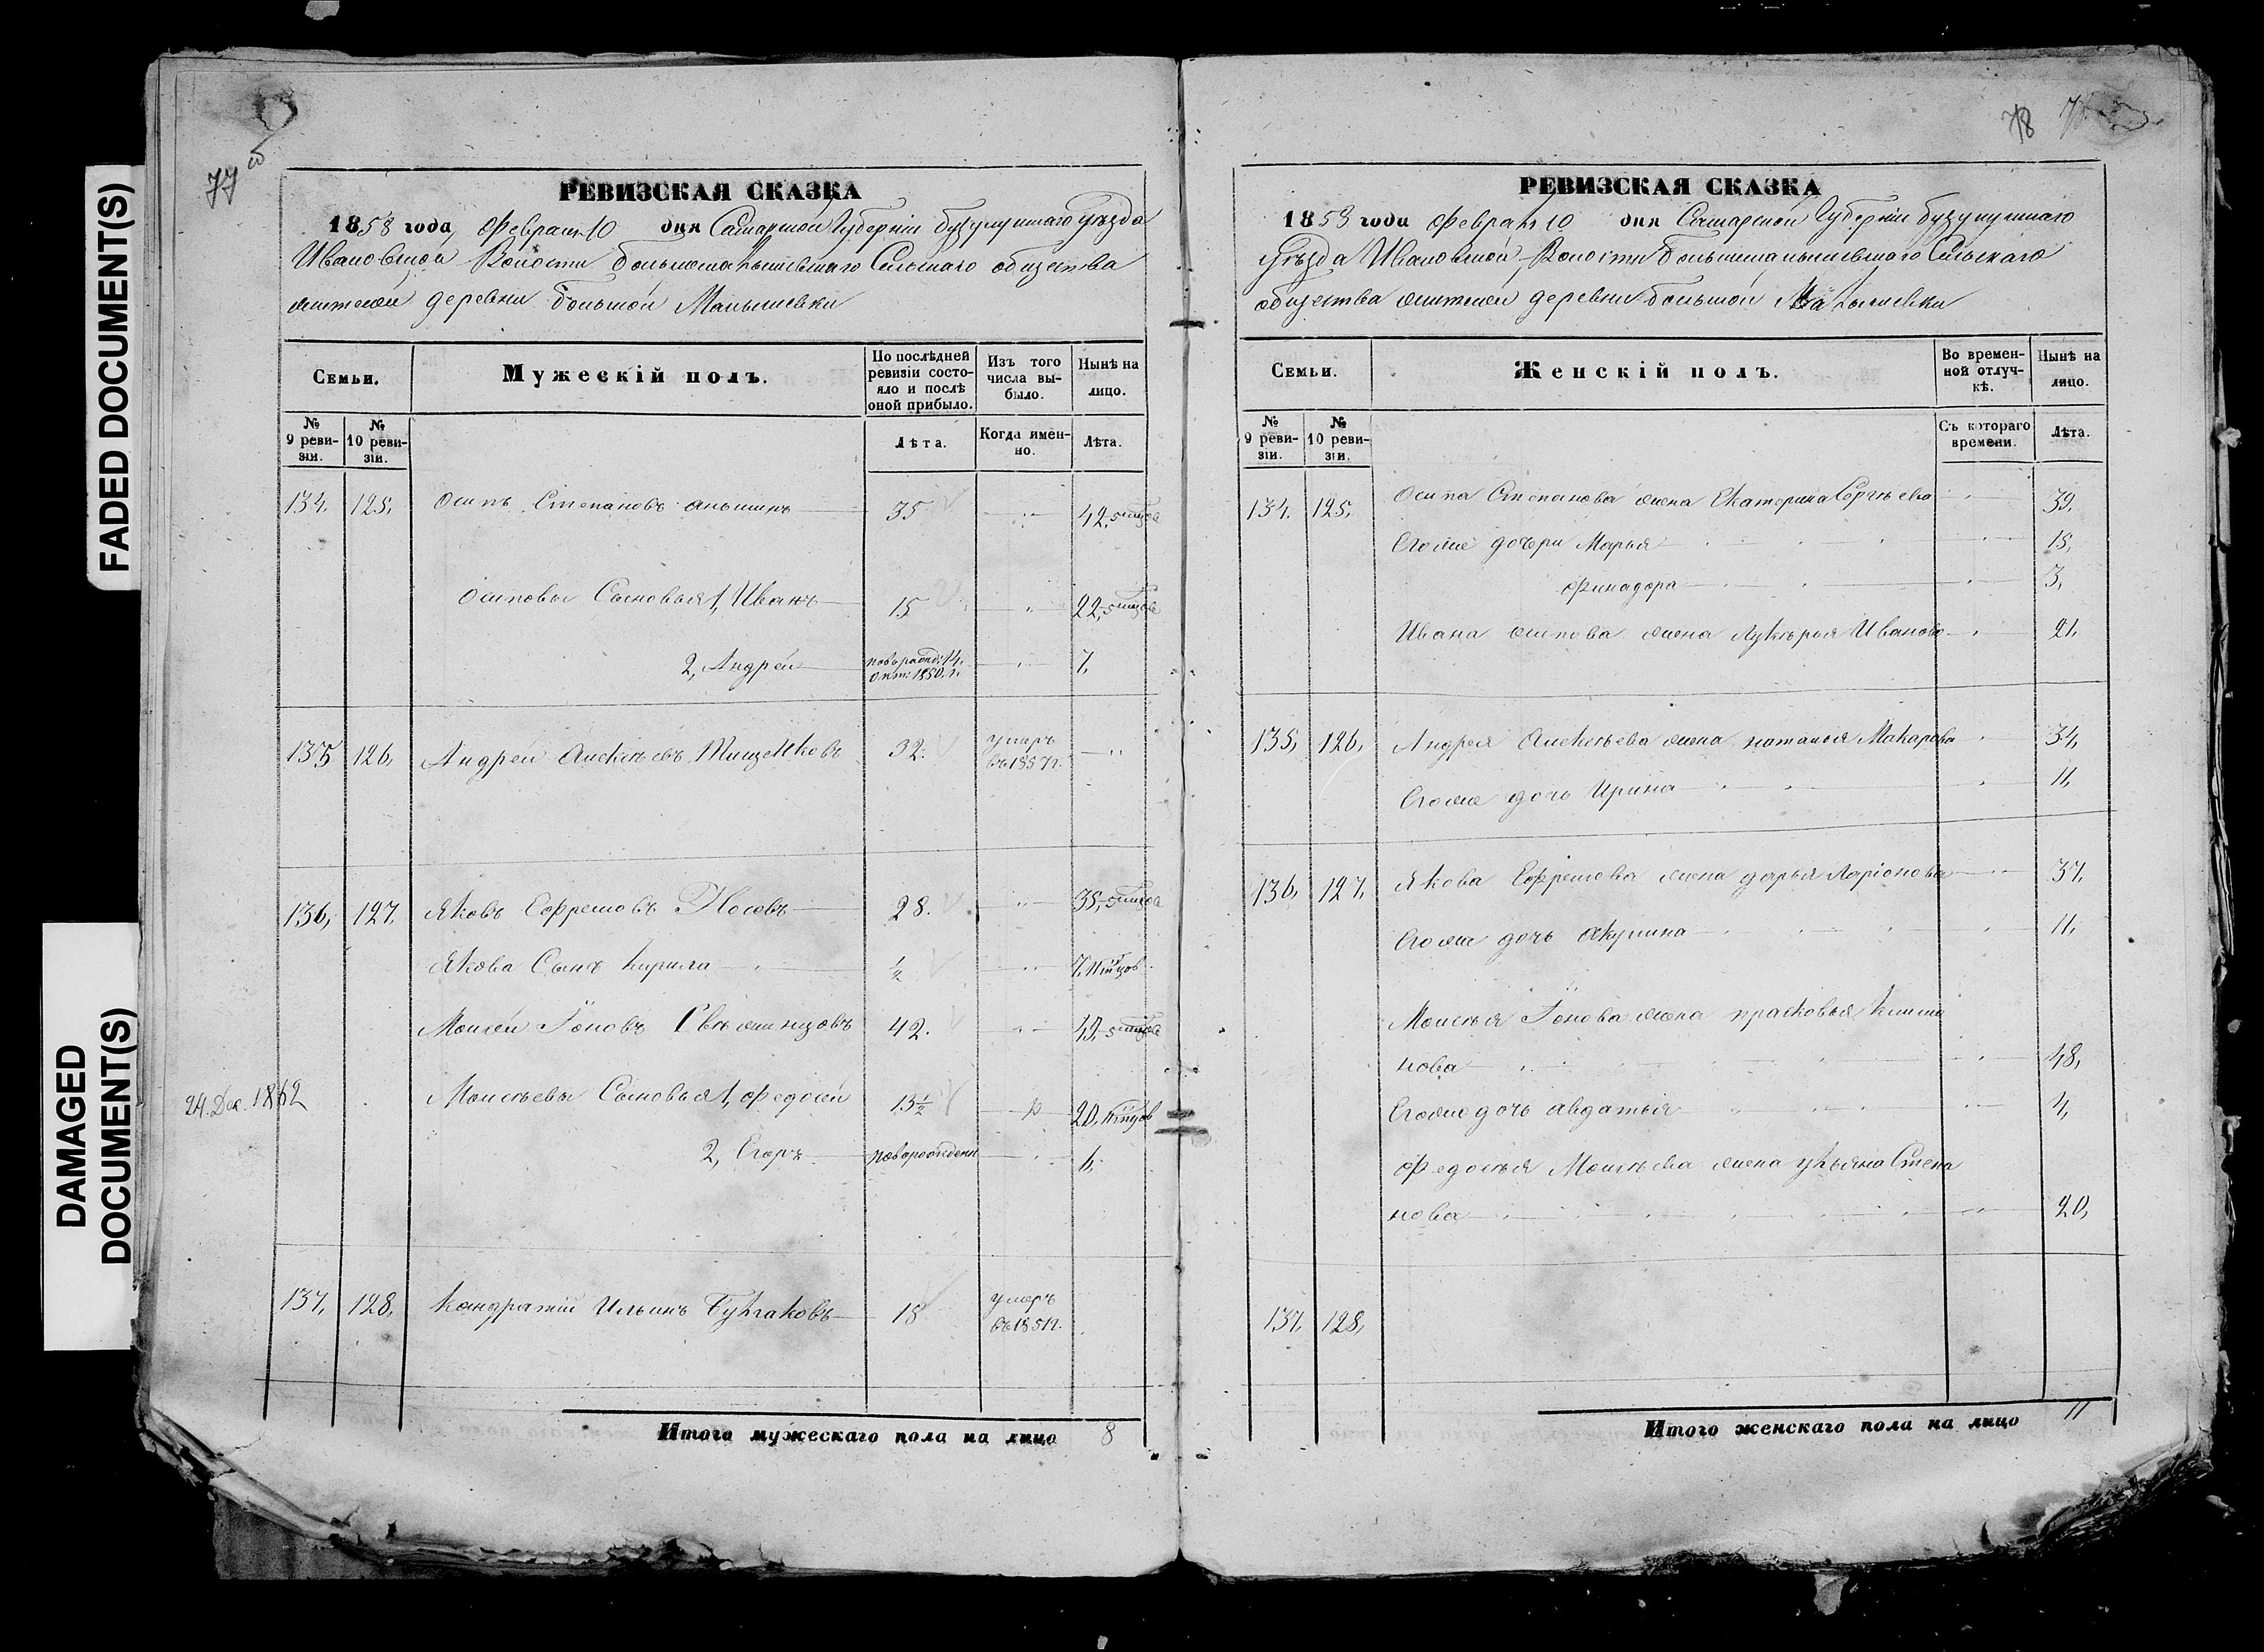 FADED DOCUMENT(S)
DAMAGED
DOCUMENT(S)
77 об
РЕВИЗСКАЯ СКАЗКА
1858 года, Февраля 10 дня Самарской Губерніи бузулукскаго Уѣзда
Ивановской Волости большемалышевскаго Сельскаго общества
жителей деревни большой Малышевки
Семьи.
Мужескій полъ.
По послѣдней ревизіи состояло и послѣ оной прибыло.
Изъ того числа выбыло.
Нынѣ на лицо.
№ 9 ревизіи.
№ 10 ревизіи.
Лѣта.
Когда именно.
Лѣта.
134. 125. Осипъ Степановъ аньшинъ 35 42,
Осиповы Сыновья 1, Иванъ 15 22,
2, Андрей новорожд: 14. окт: 1850. г. 7,
135 126, Андрей Алексѣевъ Тищенковъ 32. умеръ въ 1857 г.
136, 127, Яковъ Ефремовъ Носовъ 28. 35,
Якова Сынъ Кирила ½ 7,
Моисей Іоновъ 42. 49,
24. Дек. 1862
Моисѣевы Сыновья 1, Федосей 13½ 20,
2, Егоръ новорожденъ 6,
137, 128, Кондратій Ильинъ 18 умеръ въ 1851 г.
Итого мужескаго пола на лицо 8
78
РЕВИЗСКАЯ СКАЗКА
1858 года Февраля 10 дня Самарской Губерніи бузулукскаго
Уѣзда Ивановской Волости большемалышевскаго Сельскаго
общества жителей деревни большой Малышевки
Семьи.
Женскій полъ.
Во временной отлучкѣ.
Нынѣ на лицо.
№ 9 ревизіи.
№ 10 ревизіи.
Съ котораго времени.
Лѣта.
134. 125. Осипа Степанова жена Екатерина Сергѣева 39,
Егоже дочери Марья 15,
Финадора 3,
Ивана осипова жена Лукерья Иванова 21,
135, 126, Андрея Алексѣева жена наталья Макарова 34,
Егоже дочь Ирина 11,
136, 127, Якова Ефремова жена дарья Ларіонова 37,
Егоже дочь акулина 11,
Моисѣя Іонова жена прасковья
нова 48,
Егоже дочь авдатья 4,
Федосѣя Моисѣева жена ульяна Степа
нова 20,
137, 128,
Итого женскаго пола на лицо 11